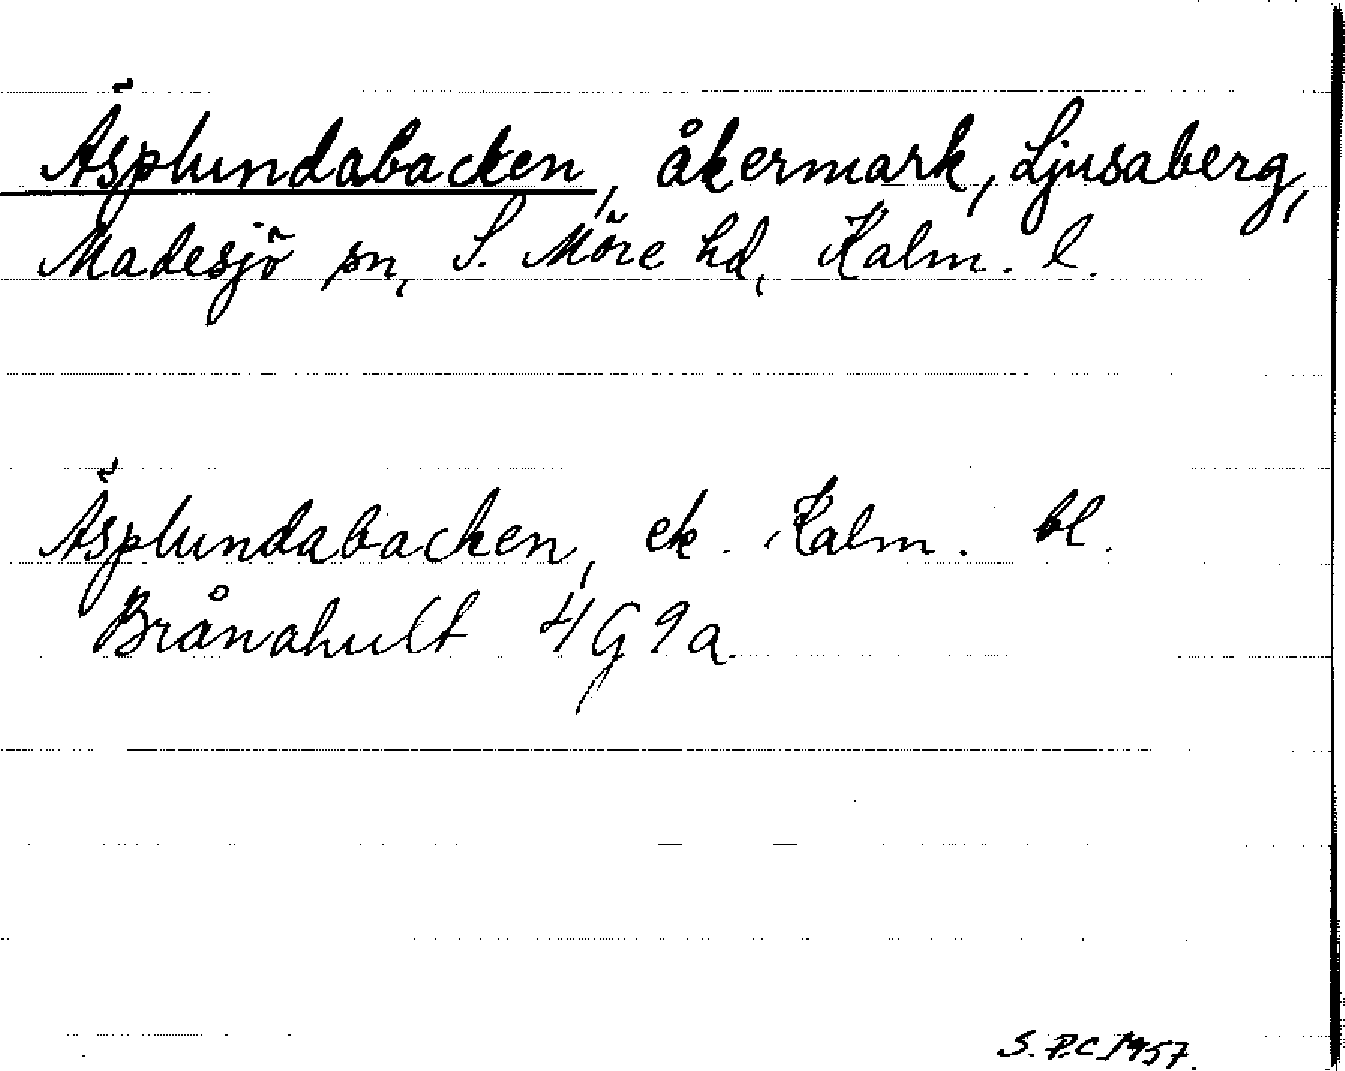 Äsplundabacken, åkermark, Ljusaberg,
Madesjö sn, S. Möre hd, Kalm. l.
Äsplundabacken, ek. Kalm. bl.
Brånahult 4G9a.
S.P.C 1957.